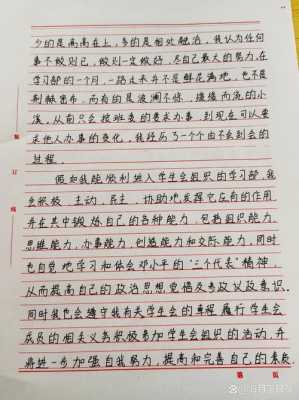 少的是高高在上,多的是相处融洽。我认为任何
事不做则已,做则一定做好,尽自己最大的努力,在
学习部的一个月,一路走来并不是鲜花满地,也不是
荆棘密布,而有的是波澜不惊,缓缓而流的小
溪,从前只会按班委的要求办事,到现在可以要
求他人办事的变化,我经历了一个个由不会到会的
过程。
假如我能顺利进入学生会组织的学习部,我
会积极、主动、民主、协助地发挥它应有的作用
并在其中锻炼自己的各种能力,包括组织能力、
思维能力、办事能力、创造能力和交际能力,同时
也自觉地学习和体会邓小平的“三个代表”精神,
从而提高自己的政治思想觉悟及参政议政意识。
同时我也会遵守我有关学生会的章程履行学生会
成员的相关义务积极参加学生会组织的活动,并
将进一步加强自我努力,提高和完善自己的素质
装
订
线
第 页